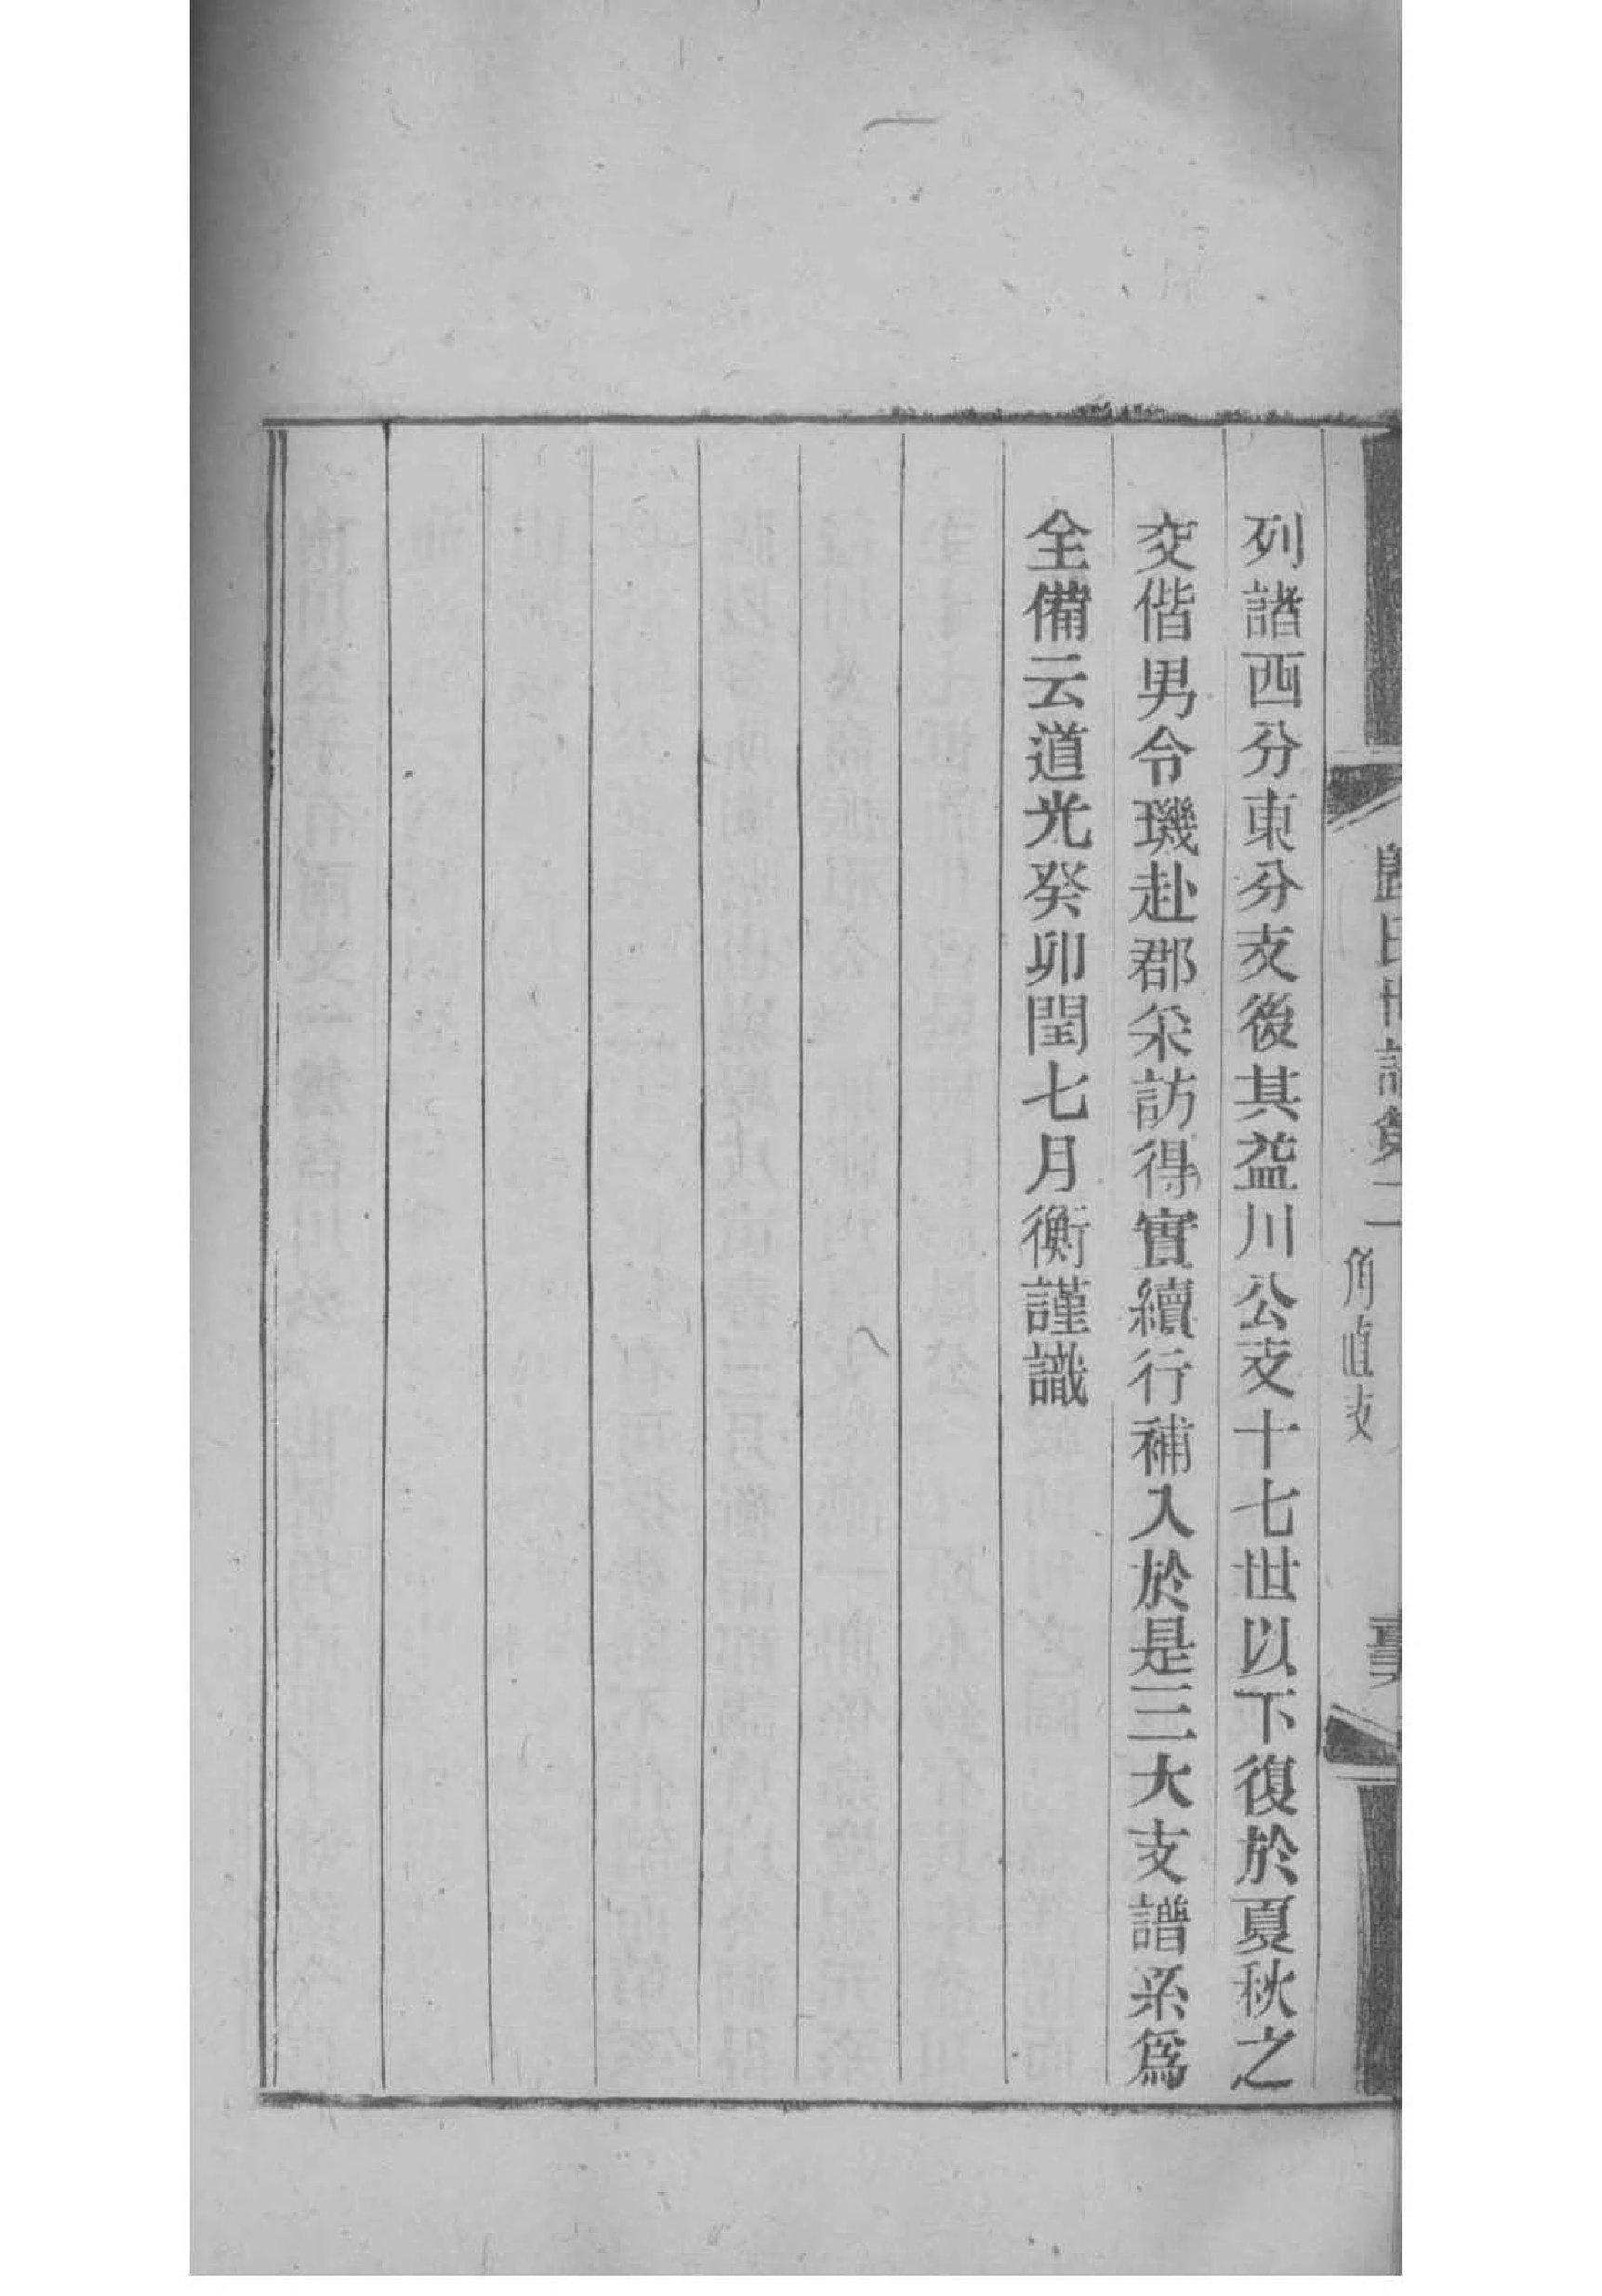 列諧西分東分支後其益川公支十七世以下復於夏秋之
交偕男令璣赴郡采訪得實續行補入於是三大支譜系爲
全備云道光癸卯閏七月衡謹識
歸氏世譜第二
角直支